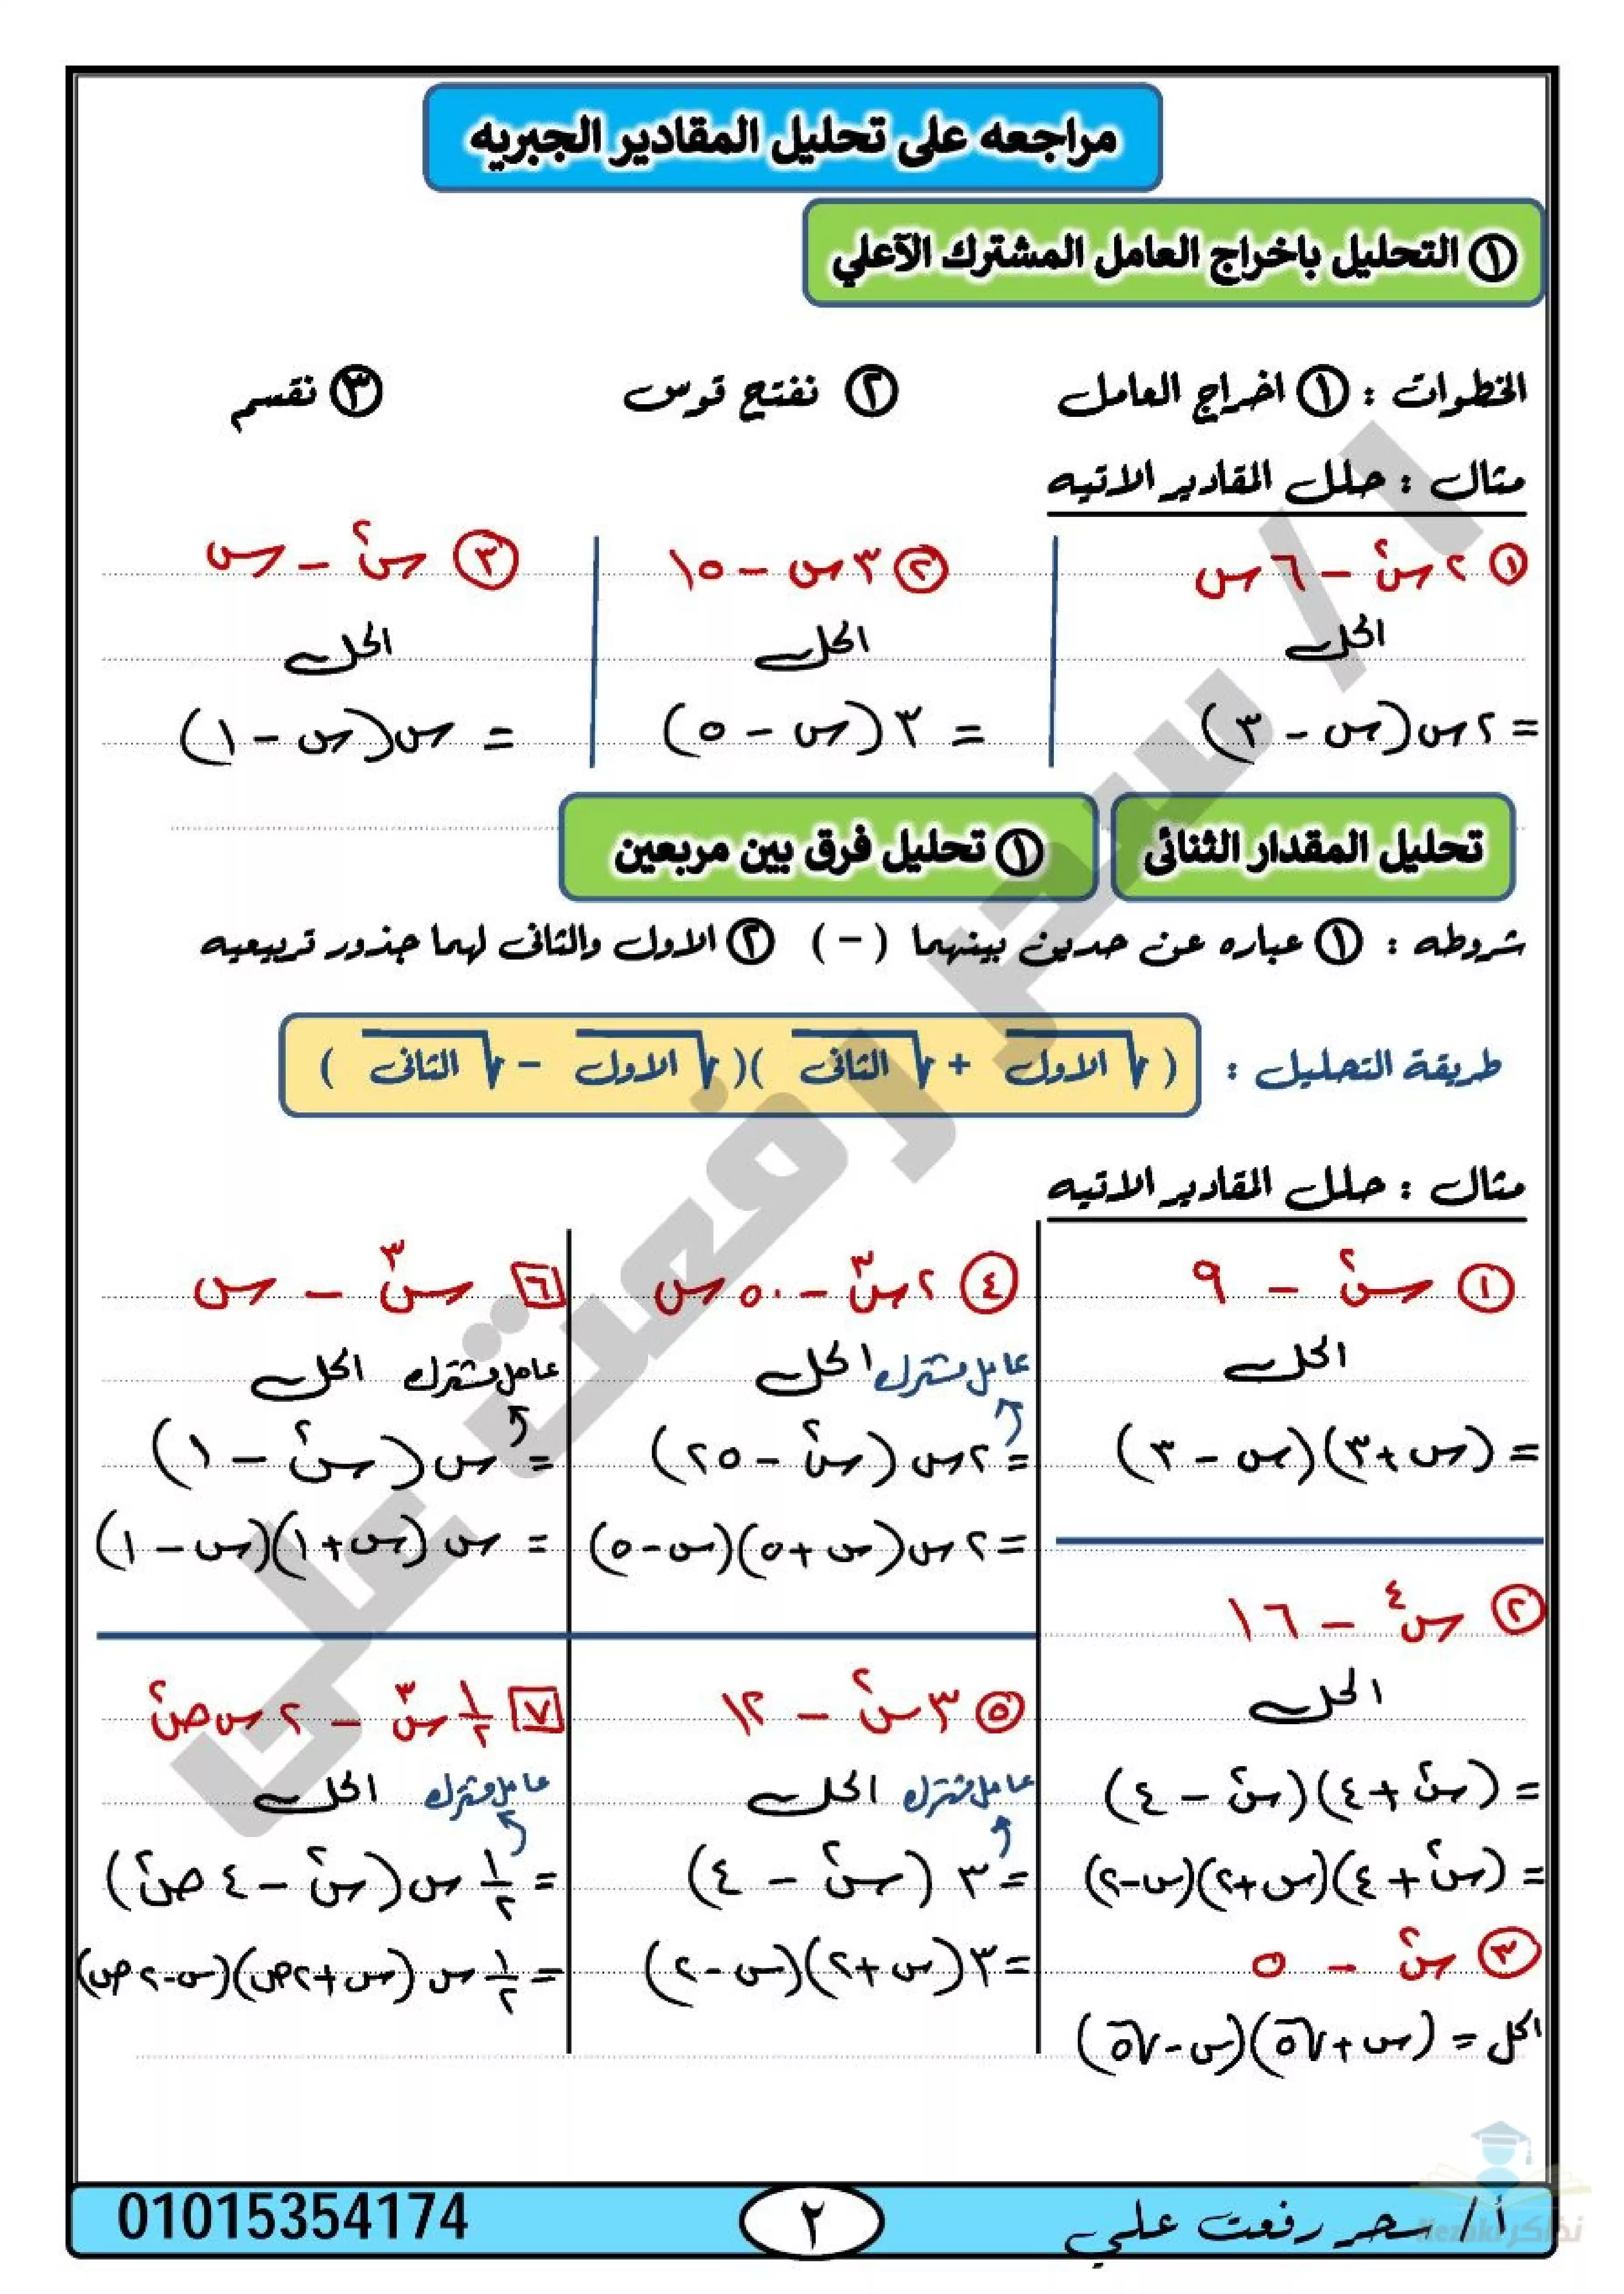 مراجعه على تحليل المقادير الجبريه
① التحليل باخراج العامل المشترك الآعلي
الخطوات : ① اخراج العامل ② نفتح قوس ③ نقسم
مثال : حلل المقادير الاتيه
① ٢س² − ٦س
الحل
= ٢س(س − ٣)
② ٣س − ١٥
الحل
= ٣(س − ٥)
③ س² − س
الحل
= س(س − ١)
تحليل المقدار الثنائى
① تحليل فرق بين مربعين
شروطه : ① عباره عن حدين بينهما ( − ) ② الاول والثانى لهما جذور تربيعيه
طريقة التحليل : ( √الاول + √الثانى )( √الاول − √الثانى )
مثال : حلل المقادير الاتيه
① س² − ٩
الحل
= (س+٣)(س − ٣)
② س⁴ − ١٦
الحل
= (س² + ٤)(س² − ٤)
= (س² + ٤)(س+٢)(س−٢)
③ س² − ٥
الحل = (س+√٥)(س−√٥)
④ ٢س³ − ٥٠س
عامل مشترك الحل
= ٢س (س² − ٢٥)
= ٢س(س+٥)(س−٥)
⑤ ٣س² − ١٢
عامل مشترك الحل
= ٣ (س² − ٤)
= ٣(س+٢)(س−٢)
٦ س³ − س
عامل مشترك الحل
= س(س² − ١)
= س (س+١)(س−١)
٧ ½س³ − ٢س ص²
عامل مشترك الحل
= ½س(س² − ٤ص²)
= ½س (س+٢ص)(س−٢ص)
أ/ سحر رفعت علي
٢
01015354174
ا/ سحر رفعت على
نذاكر
Nezakr